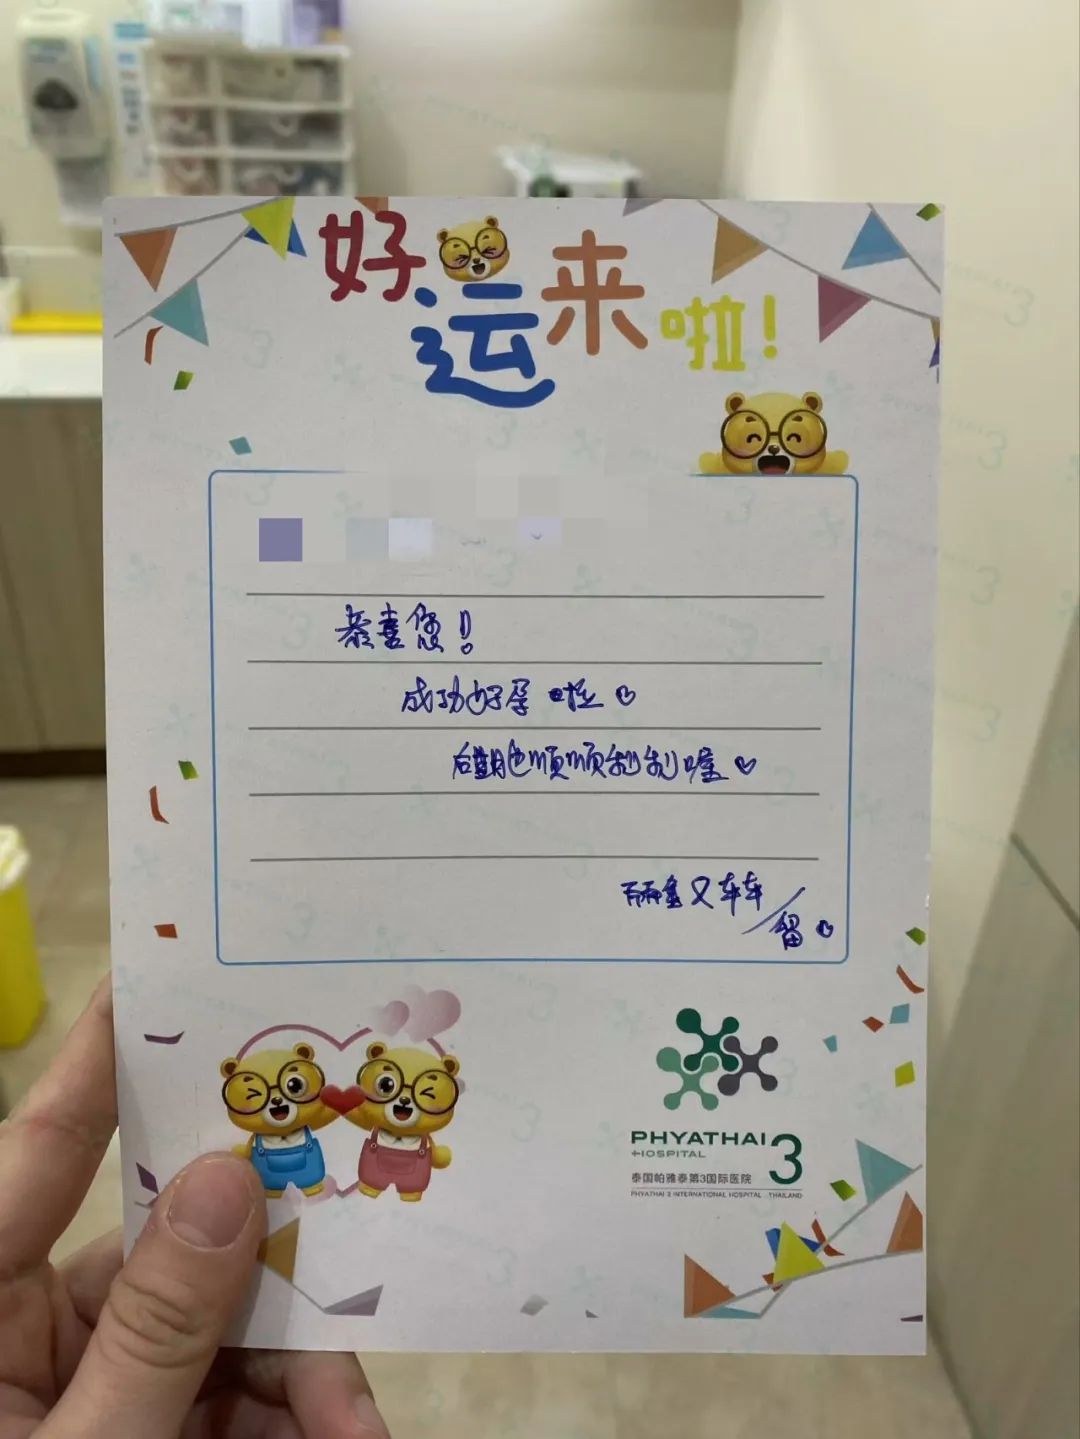 好运来啦!
恭喜您!
成功好孕啦
后期也顺顺利利喔
又轩轩
留
PHYATHAI 3
HOSPITAL
泰国帕雅泰第3国际医院
PHYATHAI 3 INTERNATIONAL HOSPITAL THAILAND